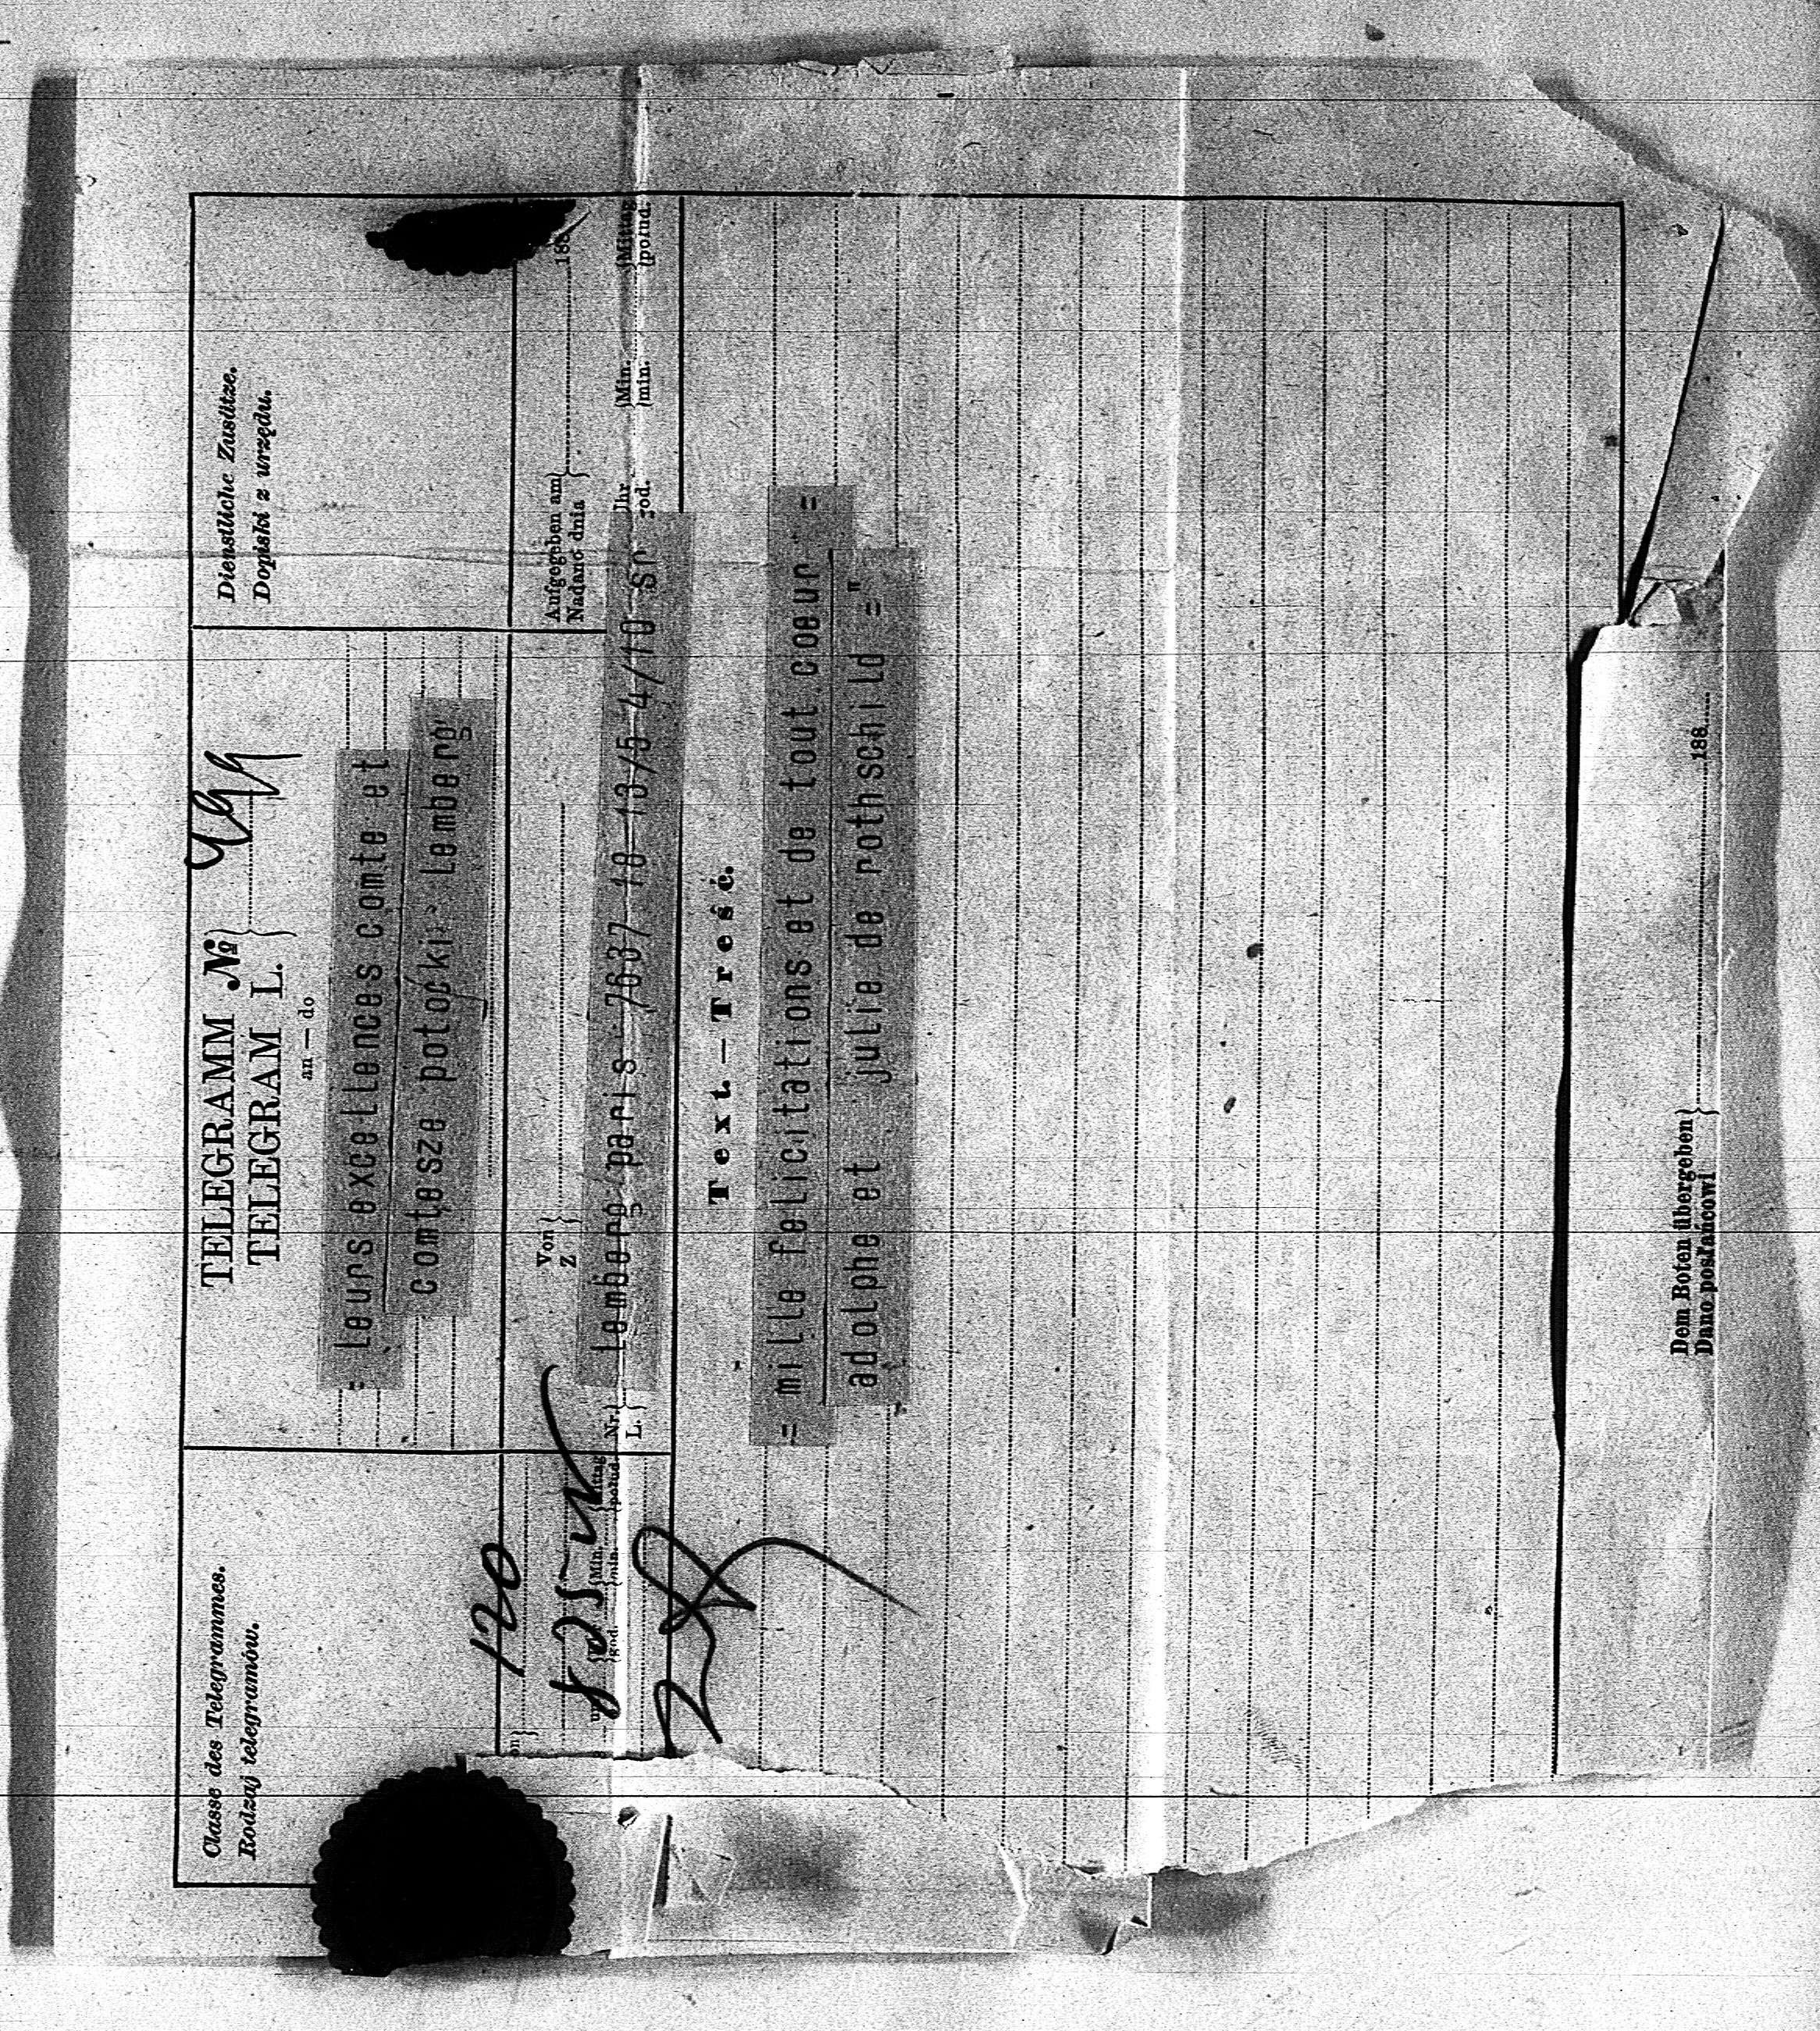 Classe des Telegrammes.
Rodzaj telegramów.
TELEGRAMM №
TELEGRAM L.
an — do
= leurs excellences comte et
comtesze potocki- lemberg
Dienstliche Zusätze.
Dopiski z urzędu.
120
8 25
Min.
min.
god.
połud.
Von
Z
Nr.
L.
lemberg paris 7637 18 13/5 4/10 sr
Aufgegeben am
Nadano dnia
188
Uhr
god.
Min.
min.
Mittag
połud.
Text. — Treść.
= mille felicitations et de tout coeur =
adolphe et julie de rothschild ="
Dem Boten übergeben
Dano posłańcowi
188